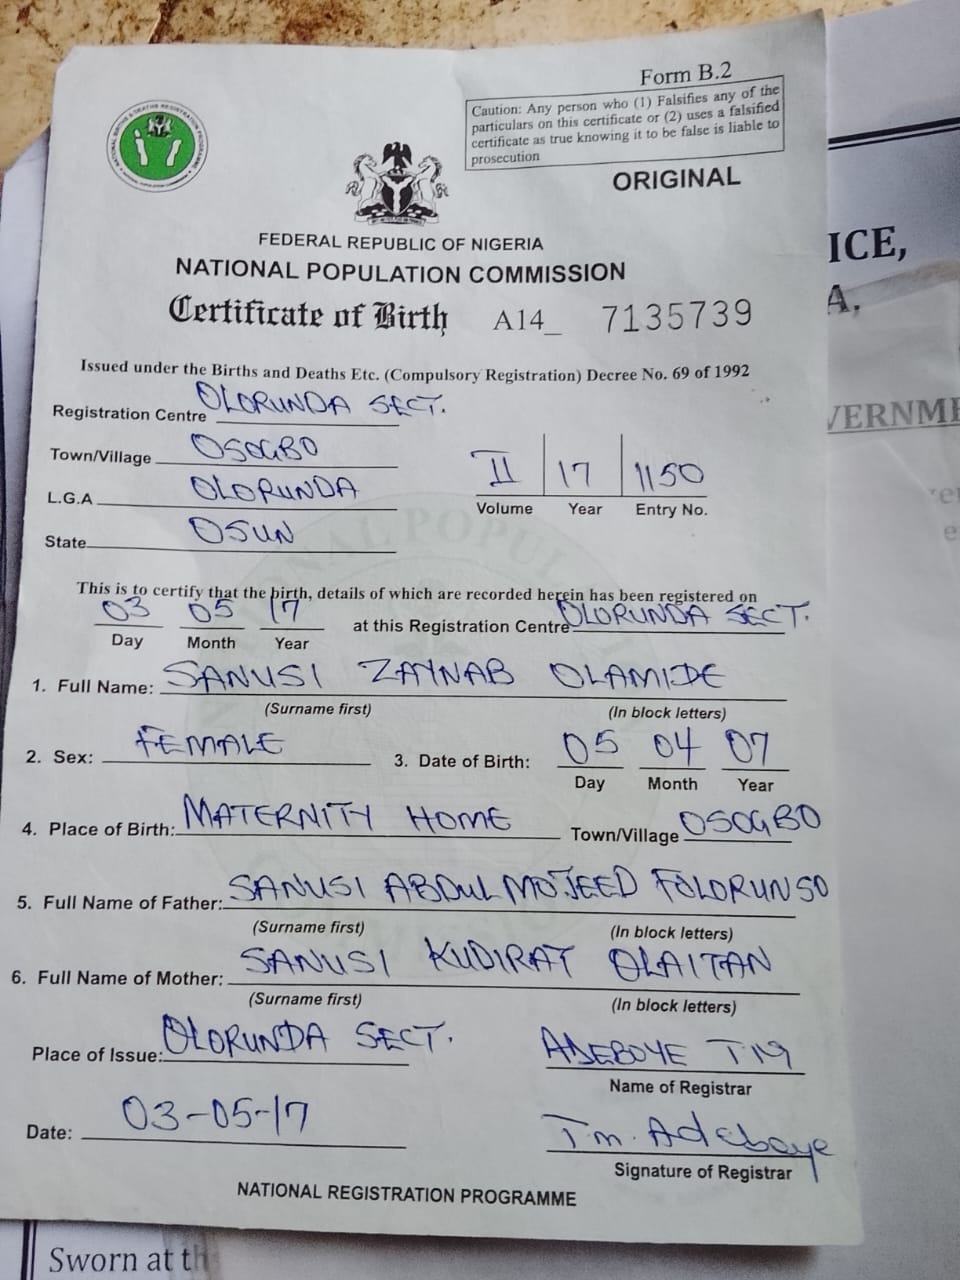 Form B.2
Caution: Any person who (1) Falsifies any of the
particulars on this certificate or (2) uses a falsified
certificate as true knowing it to be false is liable to
prosecution
ORIGINAL
FEDERAL REPUBLIC OF NIGERIA
NATIONAL POPULATION COMMISSION
Certificate of Birth A14_ 7135739
Issued under the Births and Deaths Etc. (Compulsory Registration) Decree No. 69 of 1992
Registration Centre OLORUNDA SECT.
Town/Village OSOGBO
L.G.A OLORUNDA
State OSUN
II 17 1150
Volume Year Entry No.
This is to certify that the birth, details of which are recorded herein has been registered on
03 05 17 at this Registration Centre OLORUNDA SECT.
Day Month Year
1. Full Name: SANUSI ZAYNAB OLAMIDE
(Surname first) (In block letters)
2. Sex: FEMALE 3. Date of Birth: 05 04 07
Day Month Year
4. Place of Birth: MATERNITY HOME Town/Village OSOGBO
5. Full Name of Father: SANUSI ABDUL MOJEED FOLORUNSO
(Surname first) (In block letters)
6. Full Name of Mother: SANUSI KUDIRAT OLAITAN
(Surname first) (In block letters)
Place of Issue: OLORUNDA SECT. ADEBOYE
Name of Registrar
Date: 03-05-17 T.m. Adeboye
Signature of Registrar
NATIONAL REGISTRATION PROGRAMME
ICE,
A,
VERNME
Sworn at th